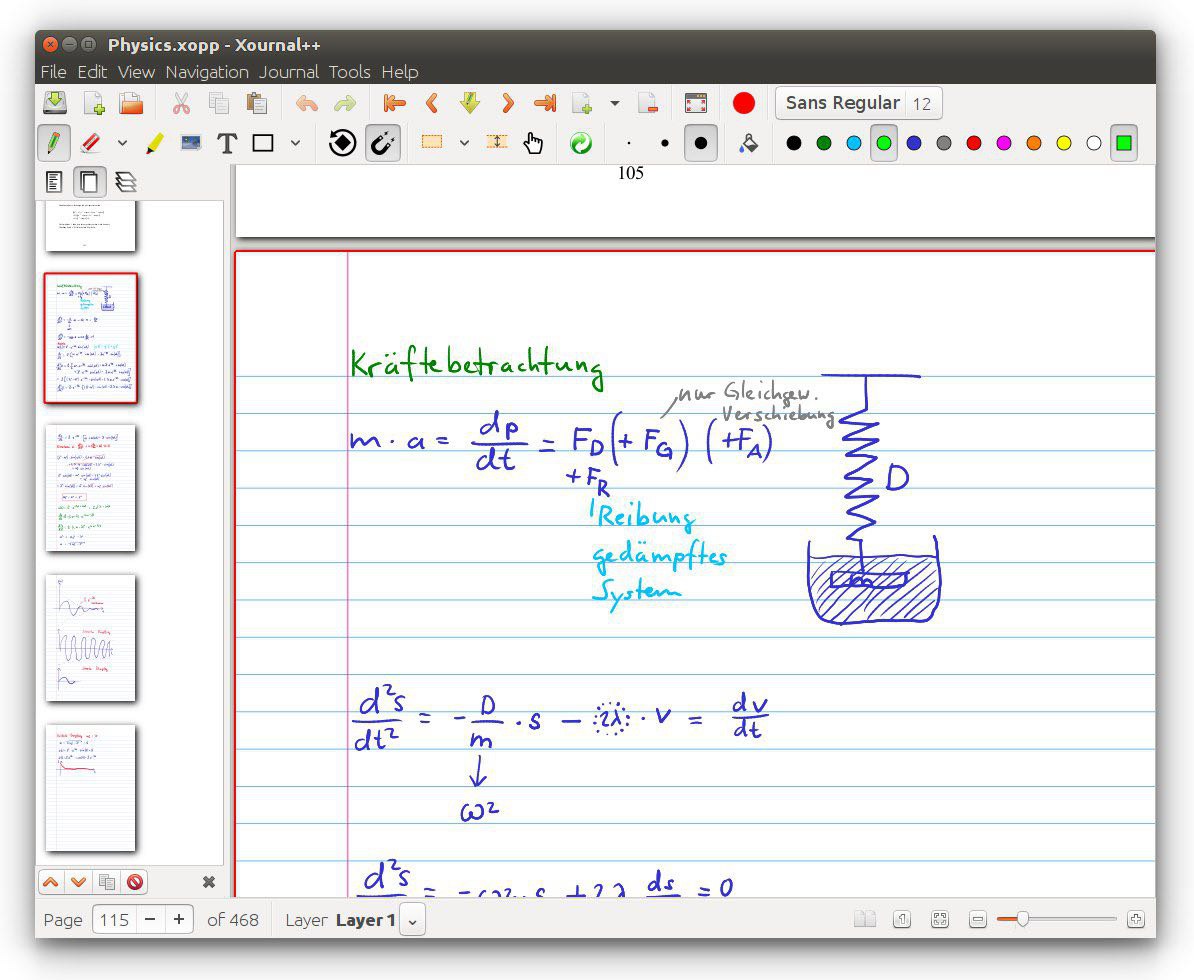 Physics.xopp - Xournal++
File Edit View Navigation Journal Tools Help
Sans Regular 12
T
105
Kräftebetrachtung
nur Gleichgew.
Verschiebung
m · a = dp/dt = F_D (+ F_G) (+F_A)
+ F_R
D
Reibung
gedämpftes
System
d²s/dt² = - D/m · s - 2λ · v = dv/dt
↓
ω²
d²s = -ω² · s + 2λ ds = 0
Page 115 − + of 468 Layer Layer 1